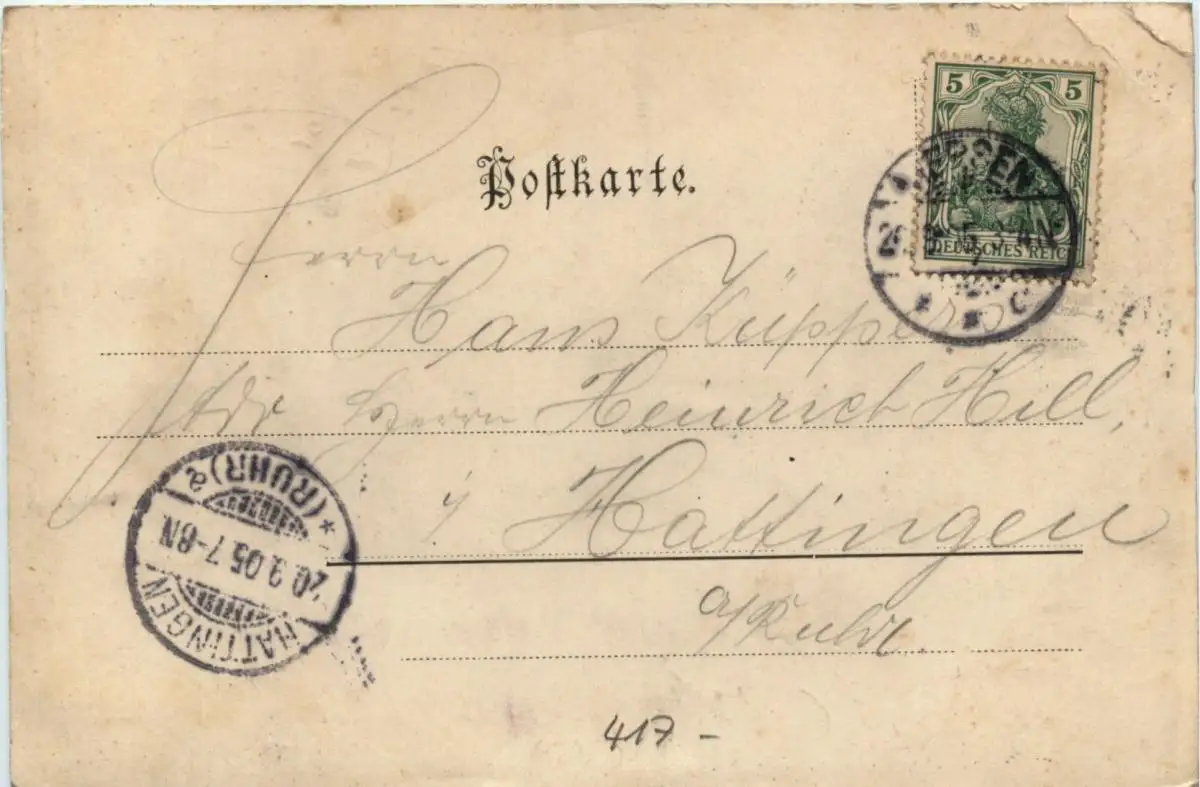 Postkarte.
5 5
DEUTSCHES REICH
Herrn
Hans Küppers
Herrn Heinrich Hill,
Hattingen
a/Ruhr.
HATTINGEN
20.9.05.7-8N
* (RUHR) a
417 -